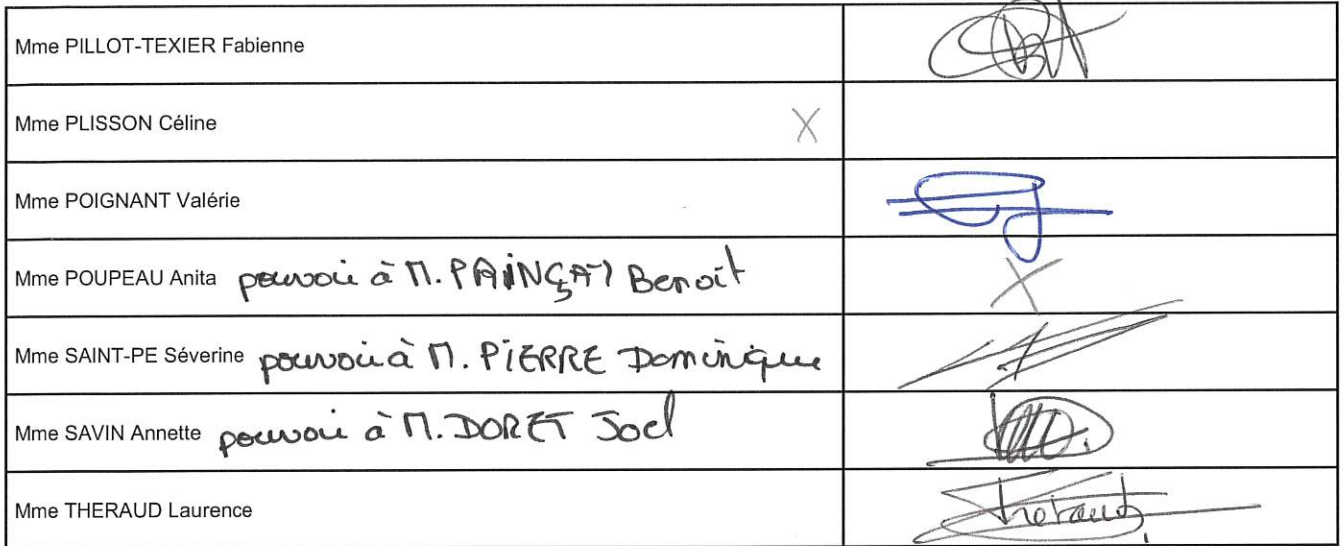 Mme PILLOT-TEXIER Fabienne
Mme PLISSON Céline X
Mme POIGNANT Valérie
Mme POUPEAU Anita pouvoir à M. PAINÇAT Benoît X
Mme SAINT-PE Séverine pouvoir à M. PIERRE Dominique
Mme SAVIN Annette pouvoir à M. DORET Joel
Mme THERAUD Laurence Theraud